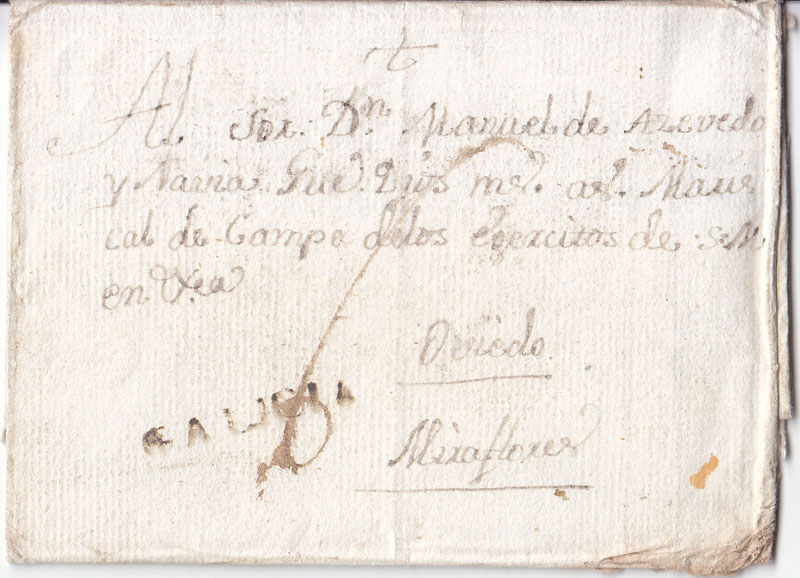 Al Sor. Dn. Manuel de Azevedo
y Navia. Gue. Dios ms. as. Maris
cal de Campo delos Exercitos de S.M
en
Oviedo
GALICIA
Miraflores